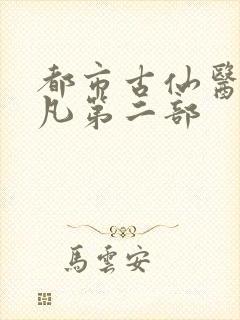 都市古仙醫
凡第二部
馬雲安